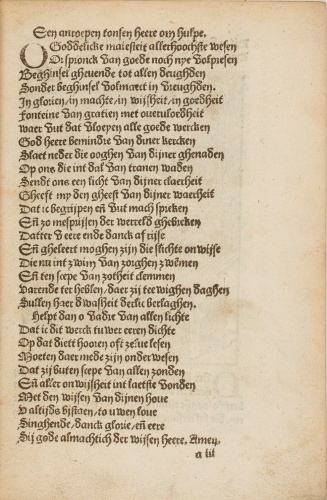 Een anroepen tonsen heere om hulpe.
O Goddelicke maiesteit alderhoochste wesen
Oirspronck van goede noch nye volpresen
Beghinsel ghevende tot allen deughden
Sonder beghinsel volmaect in vreughden.
In glorien/in machte/in wijsheit/in goedheit
Fonteine van gratien met overvloedheit
waer vut dat vloeyen alle goede wercken
God heere bemindre van diner kercken
Slaet neder die ooghen van dijner ghenaden
Op ons die int dal van tranen waden
Sendt ons een licht van dijner claerheit
Gheeft my den gheest van dijner waerheit
Dat ic begrijpen en vut mach spreken
En zo mespryssen der werreld ghebreken
Datter v eere ende danck af rijse
En gheleert moghen zijn die slichte onwijse
Die nu int zwim van zorghen zwemen
En ten scepe van zotheit clemmen
varende ter hellen/daer zij teewighen daghen
Sullen haer dwasheit deerlic beclaghen.
Helpt dan o vadre van allen lichte
Dat ic dit werck tuwer eeren dichte
Op dat diett hooren oft zelve lesen
Moeten daer mede zijn onderwesen
Dat zij buten scepe van allen zonden
En altet on wijsheit int laetste vonden
Met den wijsen van dijnen hove
v altijds bijstaen/to uwen love
Singhende/danck glorie/en eere
Sij gode almachtich der wijsen heere. Amen.
a iii